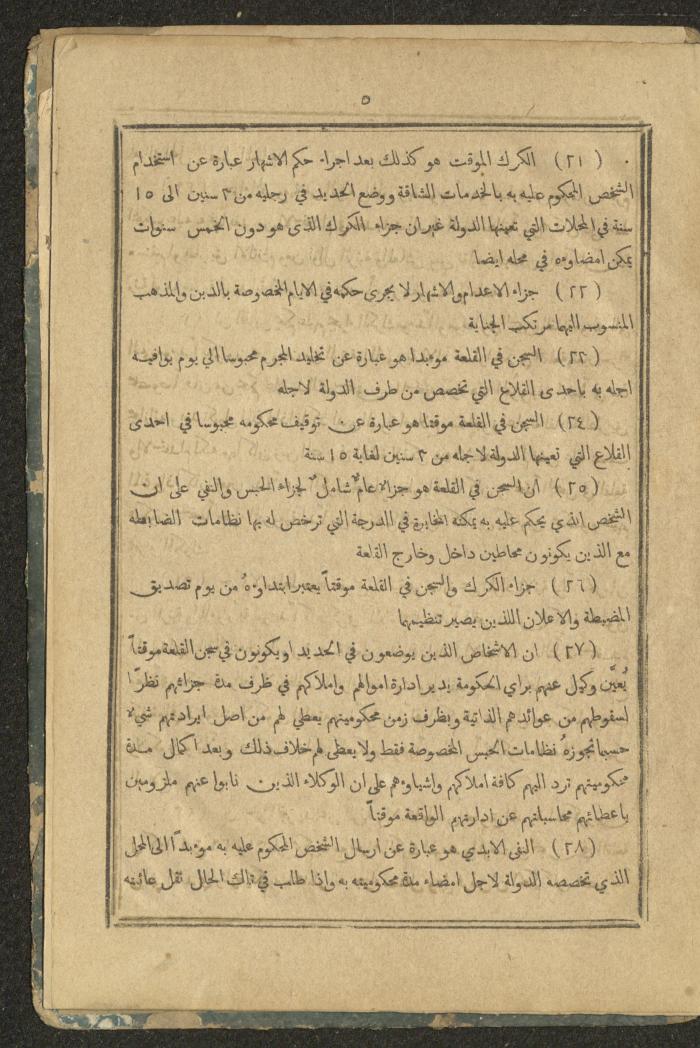 ٥
( ٢١ ) الكرك الموقت هو كذلك بعد اجراء حكم الاشهار عبارة عن استخدام
الشخص المحكوم عليه به بالخدمات الشاقة ووضع الحديد في رجليه من ٣ سنين الى ١٥
سنة في المحلات التي تعينها الدولة غير ان جزاء الكرك الذى هو دون الخمس سنوات
يمكن امضاوءه في محله ايضا
( ٢٢ ) جزاء الاعدام والاشهار لا يجرى حكمه في الايام المخصوصة بالدين والمذهب
المنسوب اليهما مرتكب الجناية
( ٢٣ ) السجن في القلعة موءبدا هو عبارة عن تخليد المجرم محبوسا الي يوم يوافيه
اجله به باحدى القلاع التي تخصص من طرف الدولة لاجله
( ٢٤ ) السجن في القلعة موقتا هو عبارة عن توقيف محكومه محبوسا في احدى
القلاع التي تعينها الدولة لاجله من ٣ سنين لغاية ١٥ سنة
( ٢٥ ) ان السجن في القلعة هو جزاء عامٌ شاملٌ لجزاء الحبس والنفي على ان
الشخص الذي يحكم عليه به يمكنه المخابرة في الدرجة التي ترخص له بها نظامات الضابطه
مع الذين يكونون محاطين داخل وخارج القلعة
( ٢٦ ) جزاء الكرك والسجن في القلعة موقتاً يعتبر ابتداوءهُ من يوم تصديق
المضبطة والاعلان اللذين يصير تنظيمهما
( ٢٧ ) ان الاشخاص الذين يوضعون في الحديد او يكونون في سجن القلعة موقتاً
يُعيَّن وكيل عنهم براي الحكومة يدير ادارة اموالهم واملاكهم في ظرف مدة جزائهم نظرًا
لسقوطهم من عوائدهم الذاتية وبظرف زمن محكوميتهم يعطي لهم من اصل ايرادتهم شيء
حسبما تجوزهُ نظامات الحبس المخصوصة فقط ولا يعطى لهم خلاف ذلك وبعد اكمال مدة
محكوميتهم ترد اليهم كافة املاكهم واشياوءهم على ان الوكلاء الذين نابوا عنهم ملزومين
باعطائهم محاسباتهم عن ادارتهم الواقعة موقتاً
( ٢٨ ) النفى الابدي هو عبارة عن ارسال الشخص المحكوم عليه به موءبداً الى المحل
الذي تخصصه الدولة لاجل امضاء مدة محكوميته به واذا طلب في تلك الحال نقل عائلته